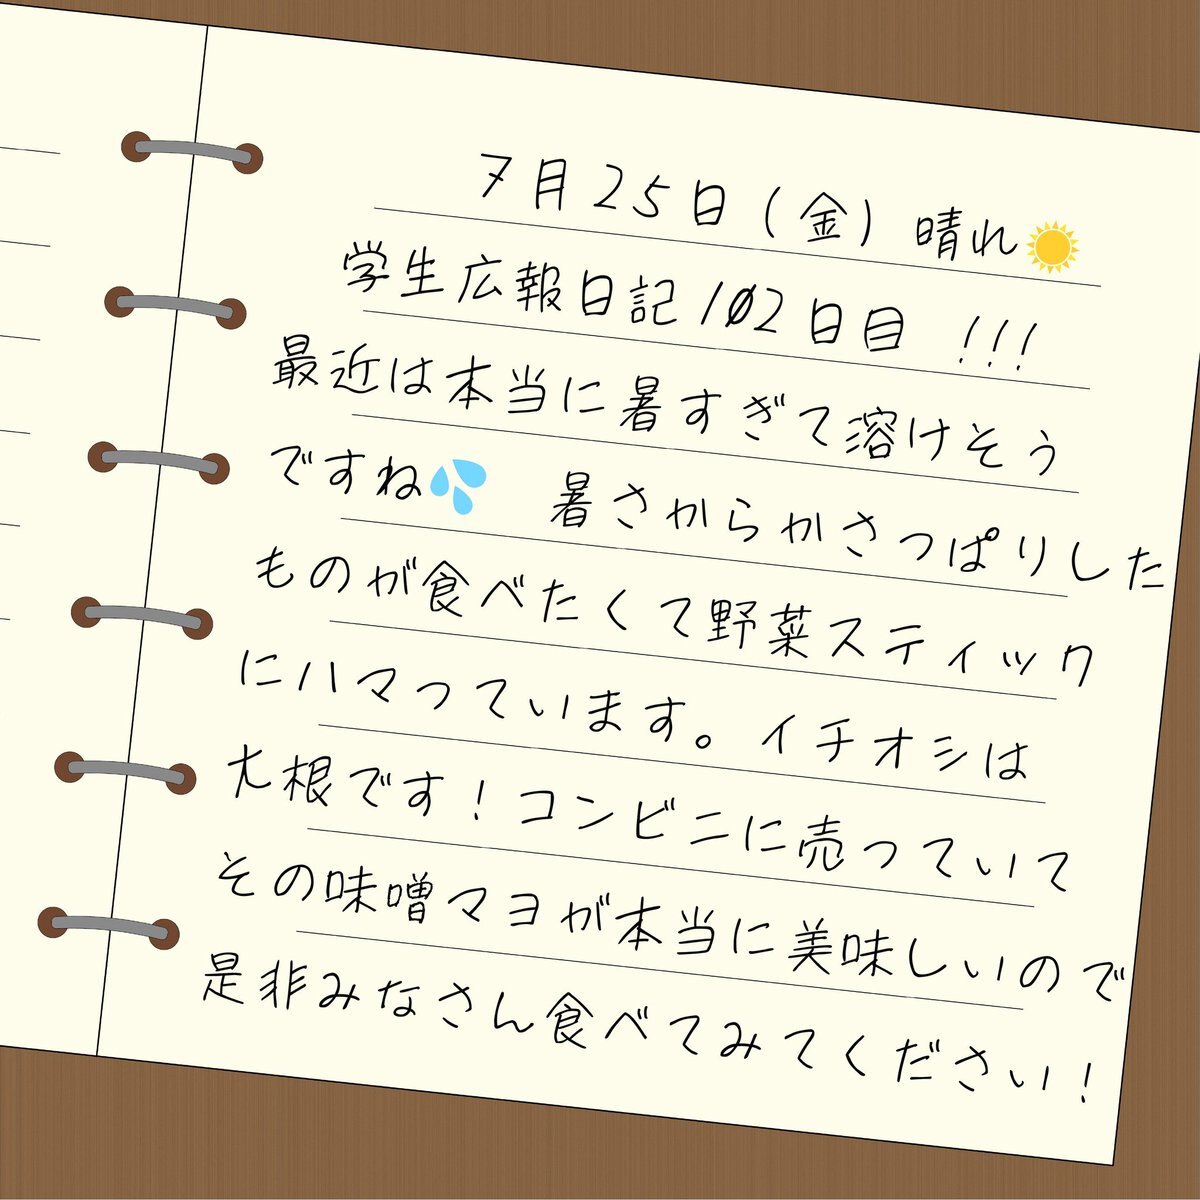 7月25日(金) 晴れ☀
学生広報日記102日目 !!!
最近は本当に暑すぎて溶けそう
ですね💦 暑さからかさっぱりした
ものが食べたくて野菜スティック
にハマっています。イチオシは
大根です!コンビニに売っていて
その味噌マヨが本当に美味しいので
是非みなさん食べてみてください!